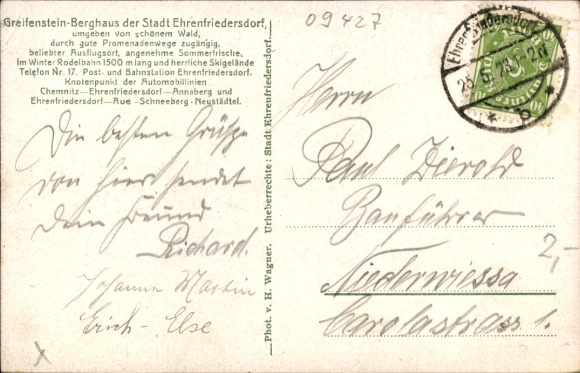 Greifenstein-Berghaus der Stadt Ehrenfriedersdorf,
umgeben von schönem Wald,
durch gute Promenadenwege zugängig,
beliebter Ausflugsort, angenehme Sommerfrische,
Im Winter Rodelbahn 1500 m lang und herrliche Skigelände
Telefon Nr. 17. Post- und Bahnstation Ehrenfriedersdorf.
Knotenpunkt der Automobillinien
Chemnitz—Ehrenfriedersdorf—Annaberg und
Ehrenfriedersdorf—Aue-Schneeberg-Neustädtel.
Die besten Grüße
von hier sendet
Dein Freund
Richard.
Johanne Martin
Erich - Else
x
Phot. v. H. Wagner. Urheberrechte: Stadt Ehrenfriedersdorf.
09427
Ehrenfriedersdorf
25.5.23
* b *
Herrn
Paul Dierold
Bauführer
2,-
Niederwiessa
Carolastrass 1.